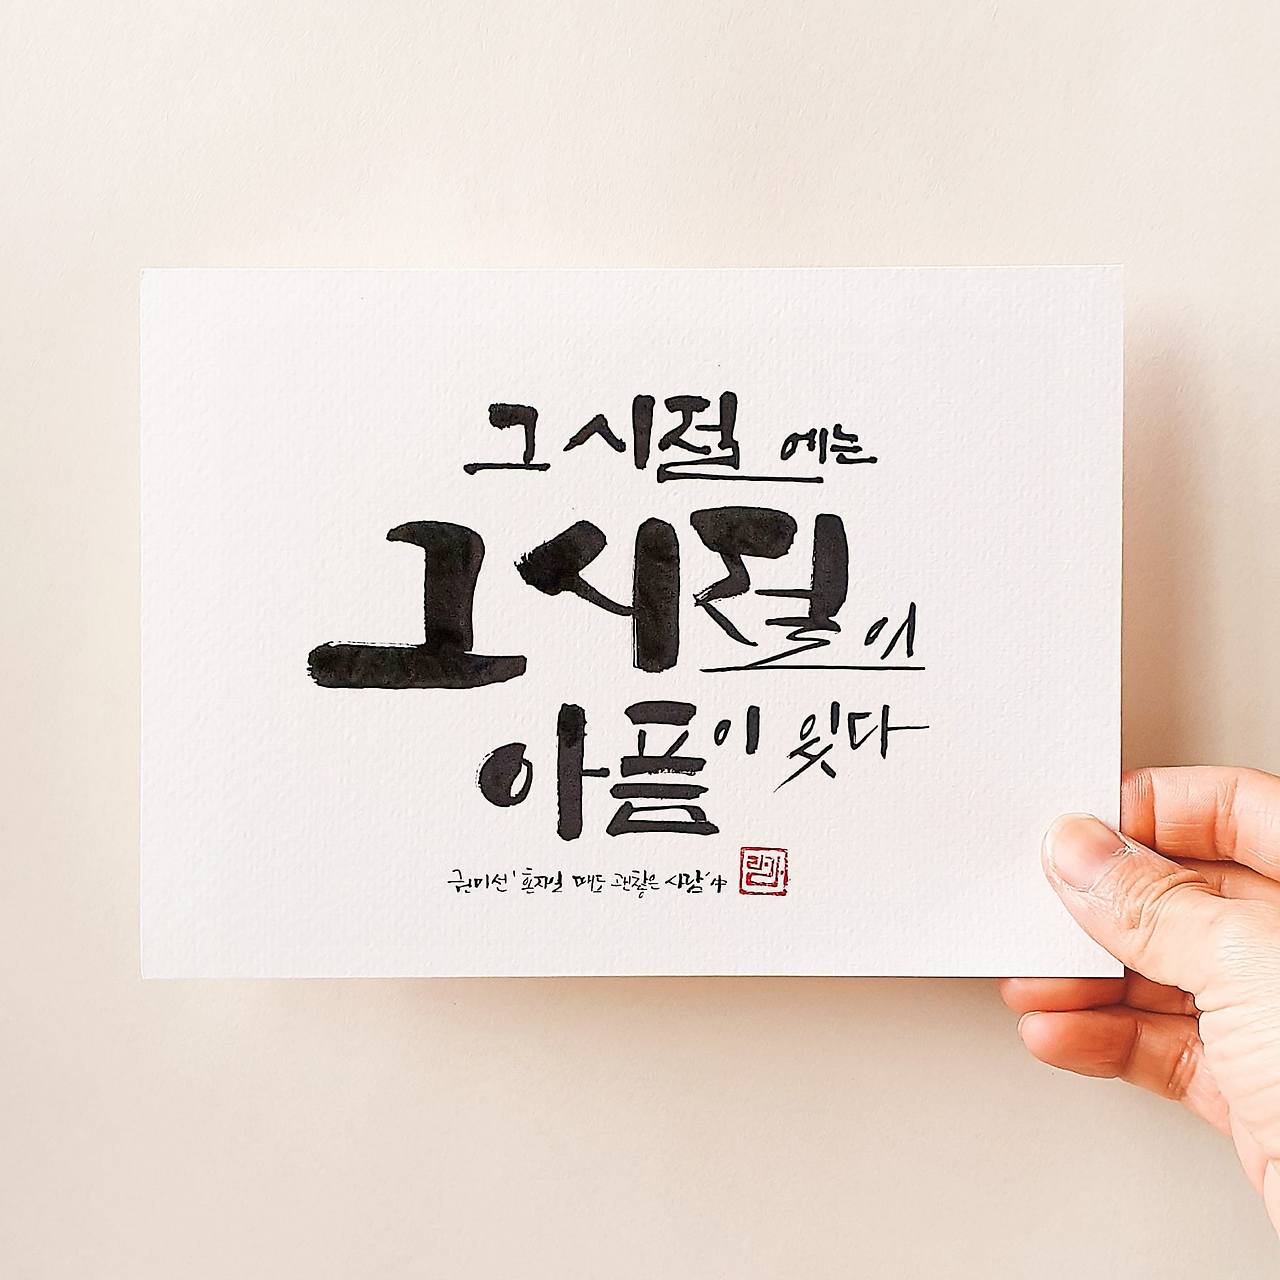 그 시절 에는
그 시절이
아픔이 있다
권미선 '혼자일 때도 괜찮은 사람' 中